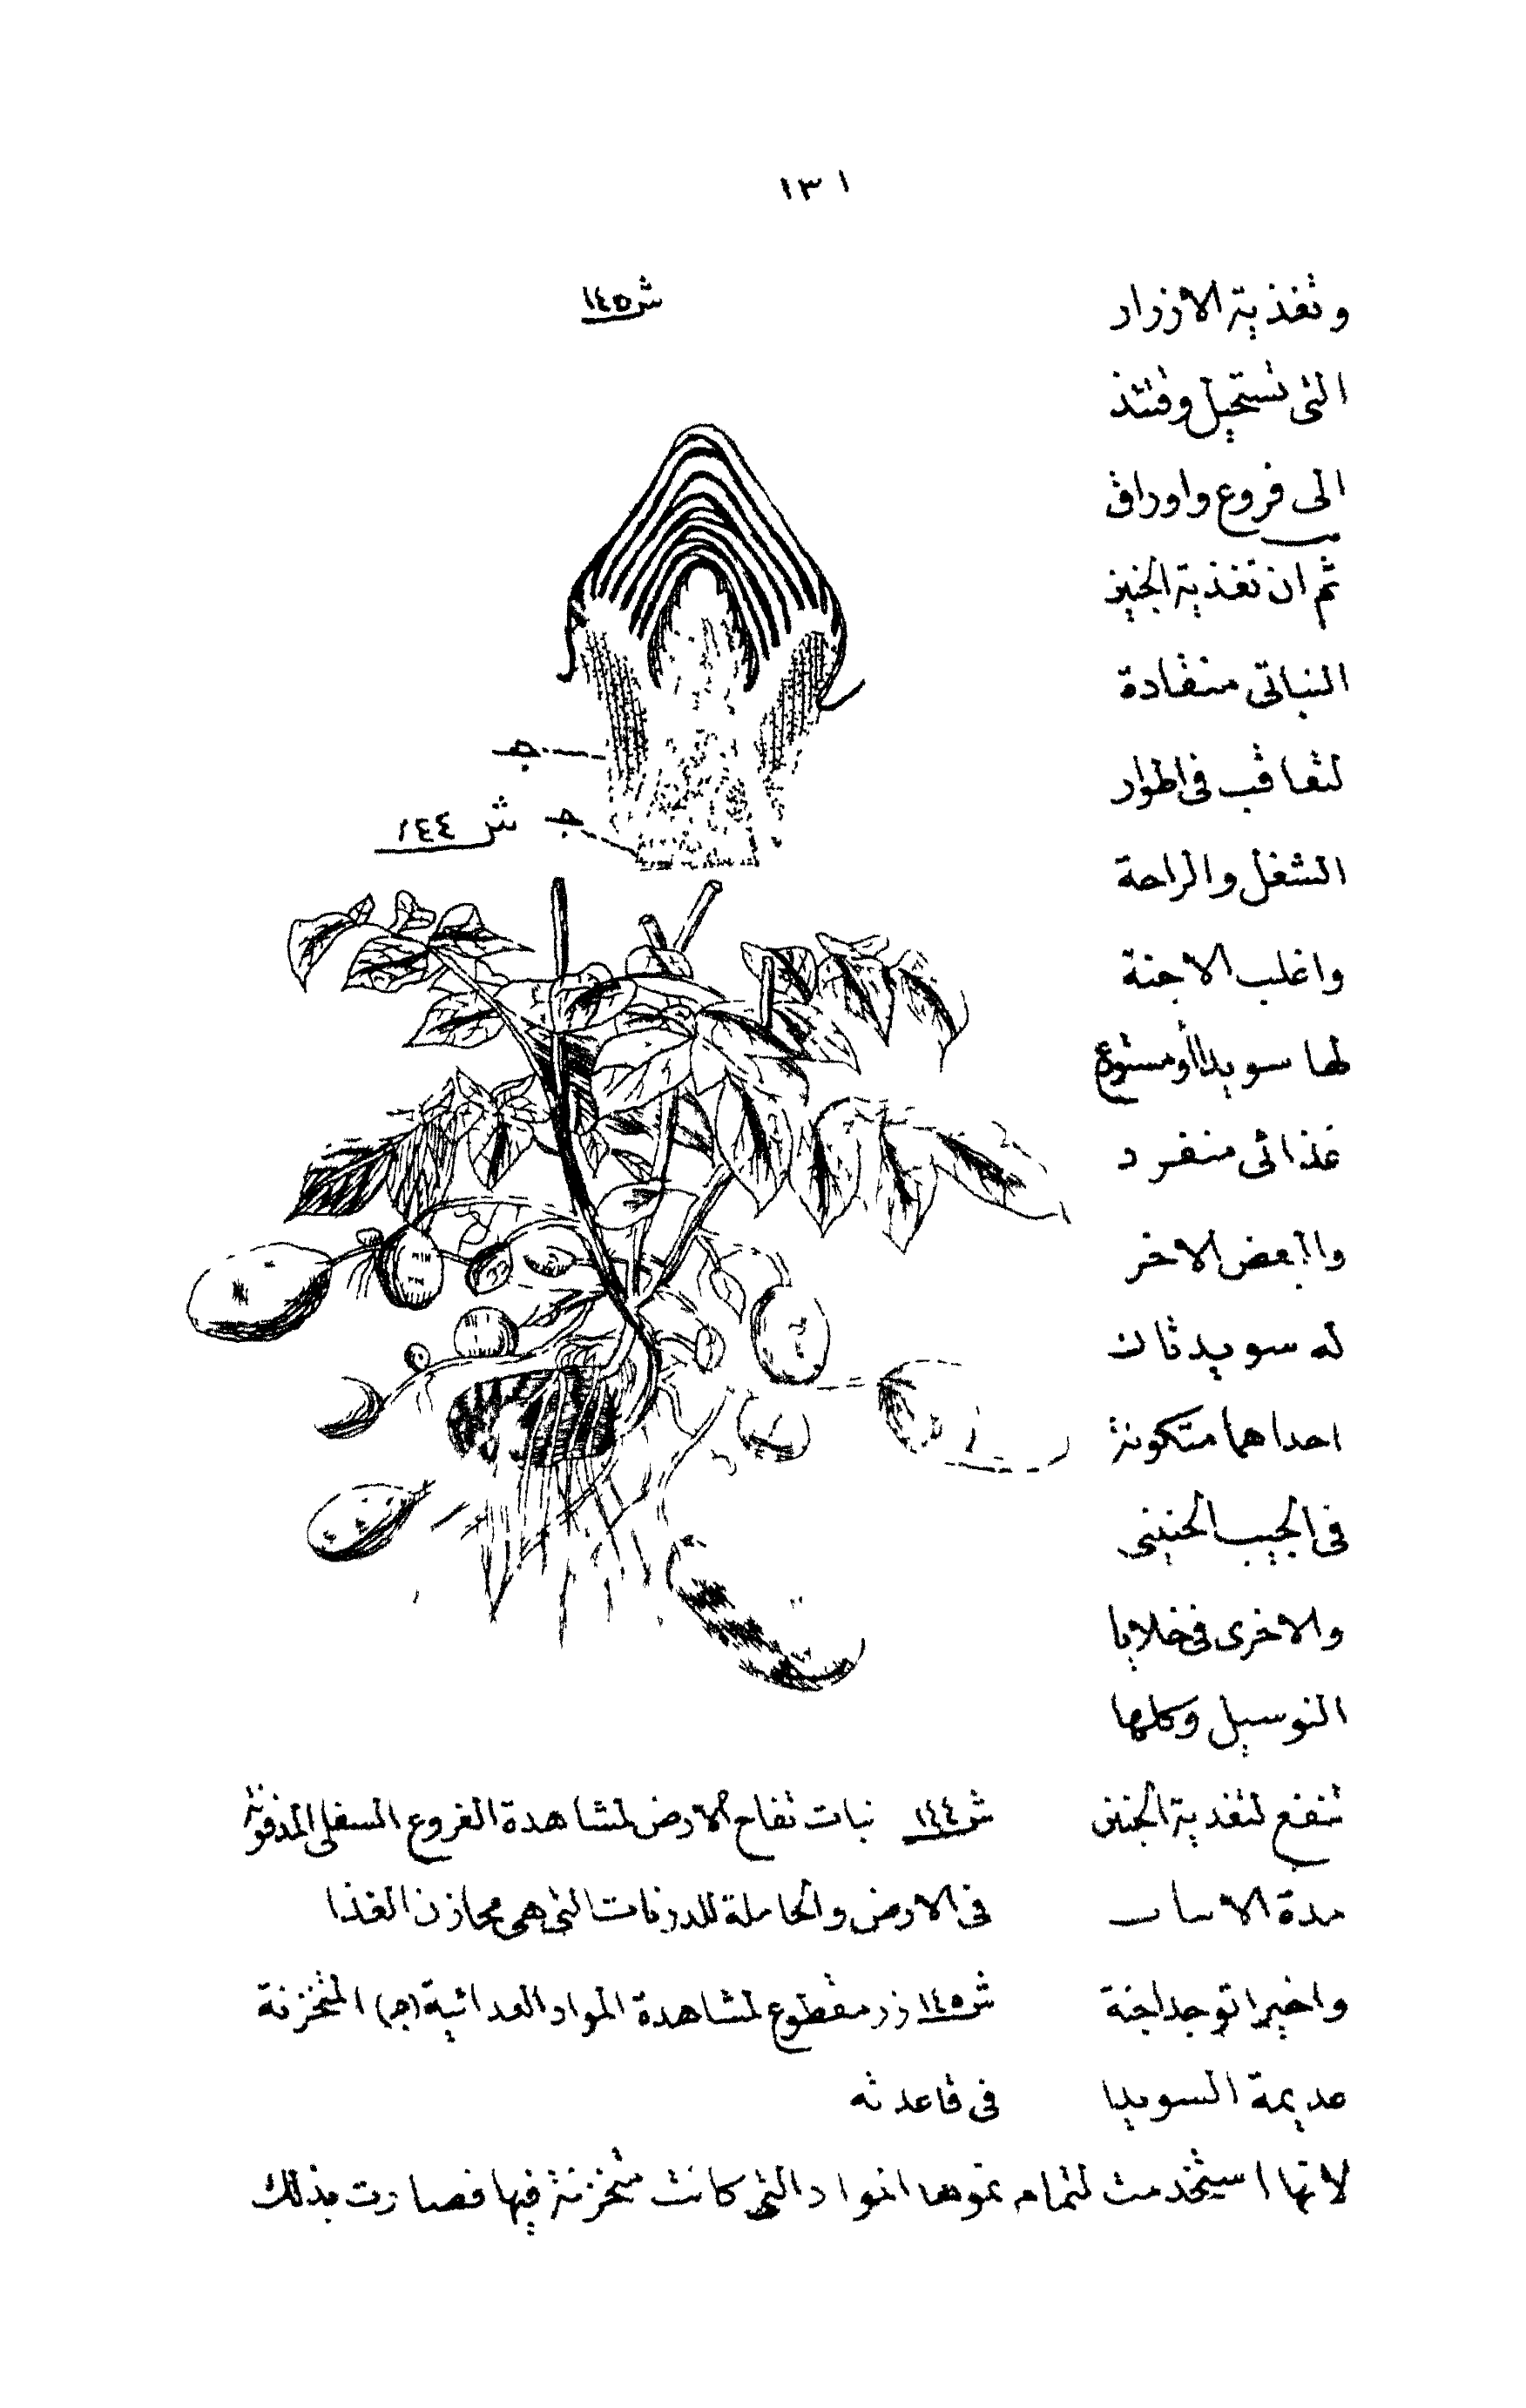 ١٣١
وتغذية الازرار
التى تستحيل وقتئذ
الى فروع واوراق
ثم ان تغذية الجنين
النباتى منقادة
لتعاقب فى اطوار
الشغل والراحة
واغلب الاجنة
لها سويدا أو مستودع
غذائى منفرد
والبعض الاخر
له سويدتان
احداهما متكونة
فى الجيب الجنينى
والاخرى فى خلايا
النوسيل وكلها
تنفع لتغدية الجنين
مدة الانبات
واخيرا توجد اجنة
عديمة السويدا
ش ١٤٥
جـ
جـ
ش ١٤٤
ش ١٤٤ نبات تفاح الارض لمشاهدة الفروع السفلى المدفونة
فى الارض والحاملة للدرنات التى هى مخازن الغذا
ش ١٤٥ زر مقطوع لمشاهدة المواد الغدائية (جـ) المتخزنة
فى قاعدته
لانها استخدمت لتمام نموها المواد التى كانت متخزنة فيها فصارت بذلك